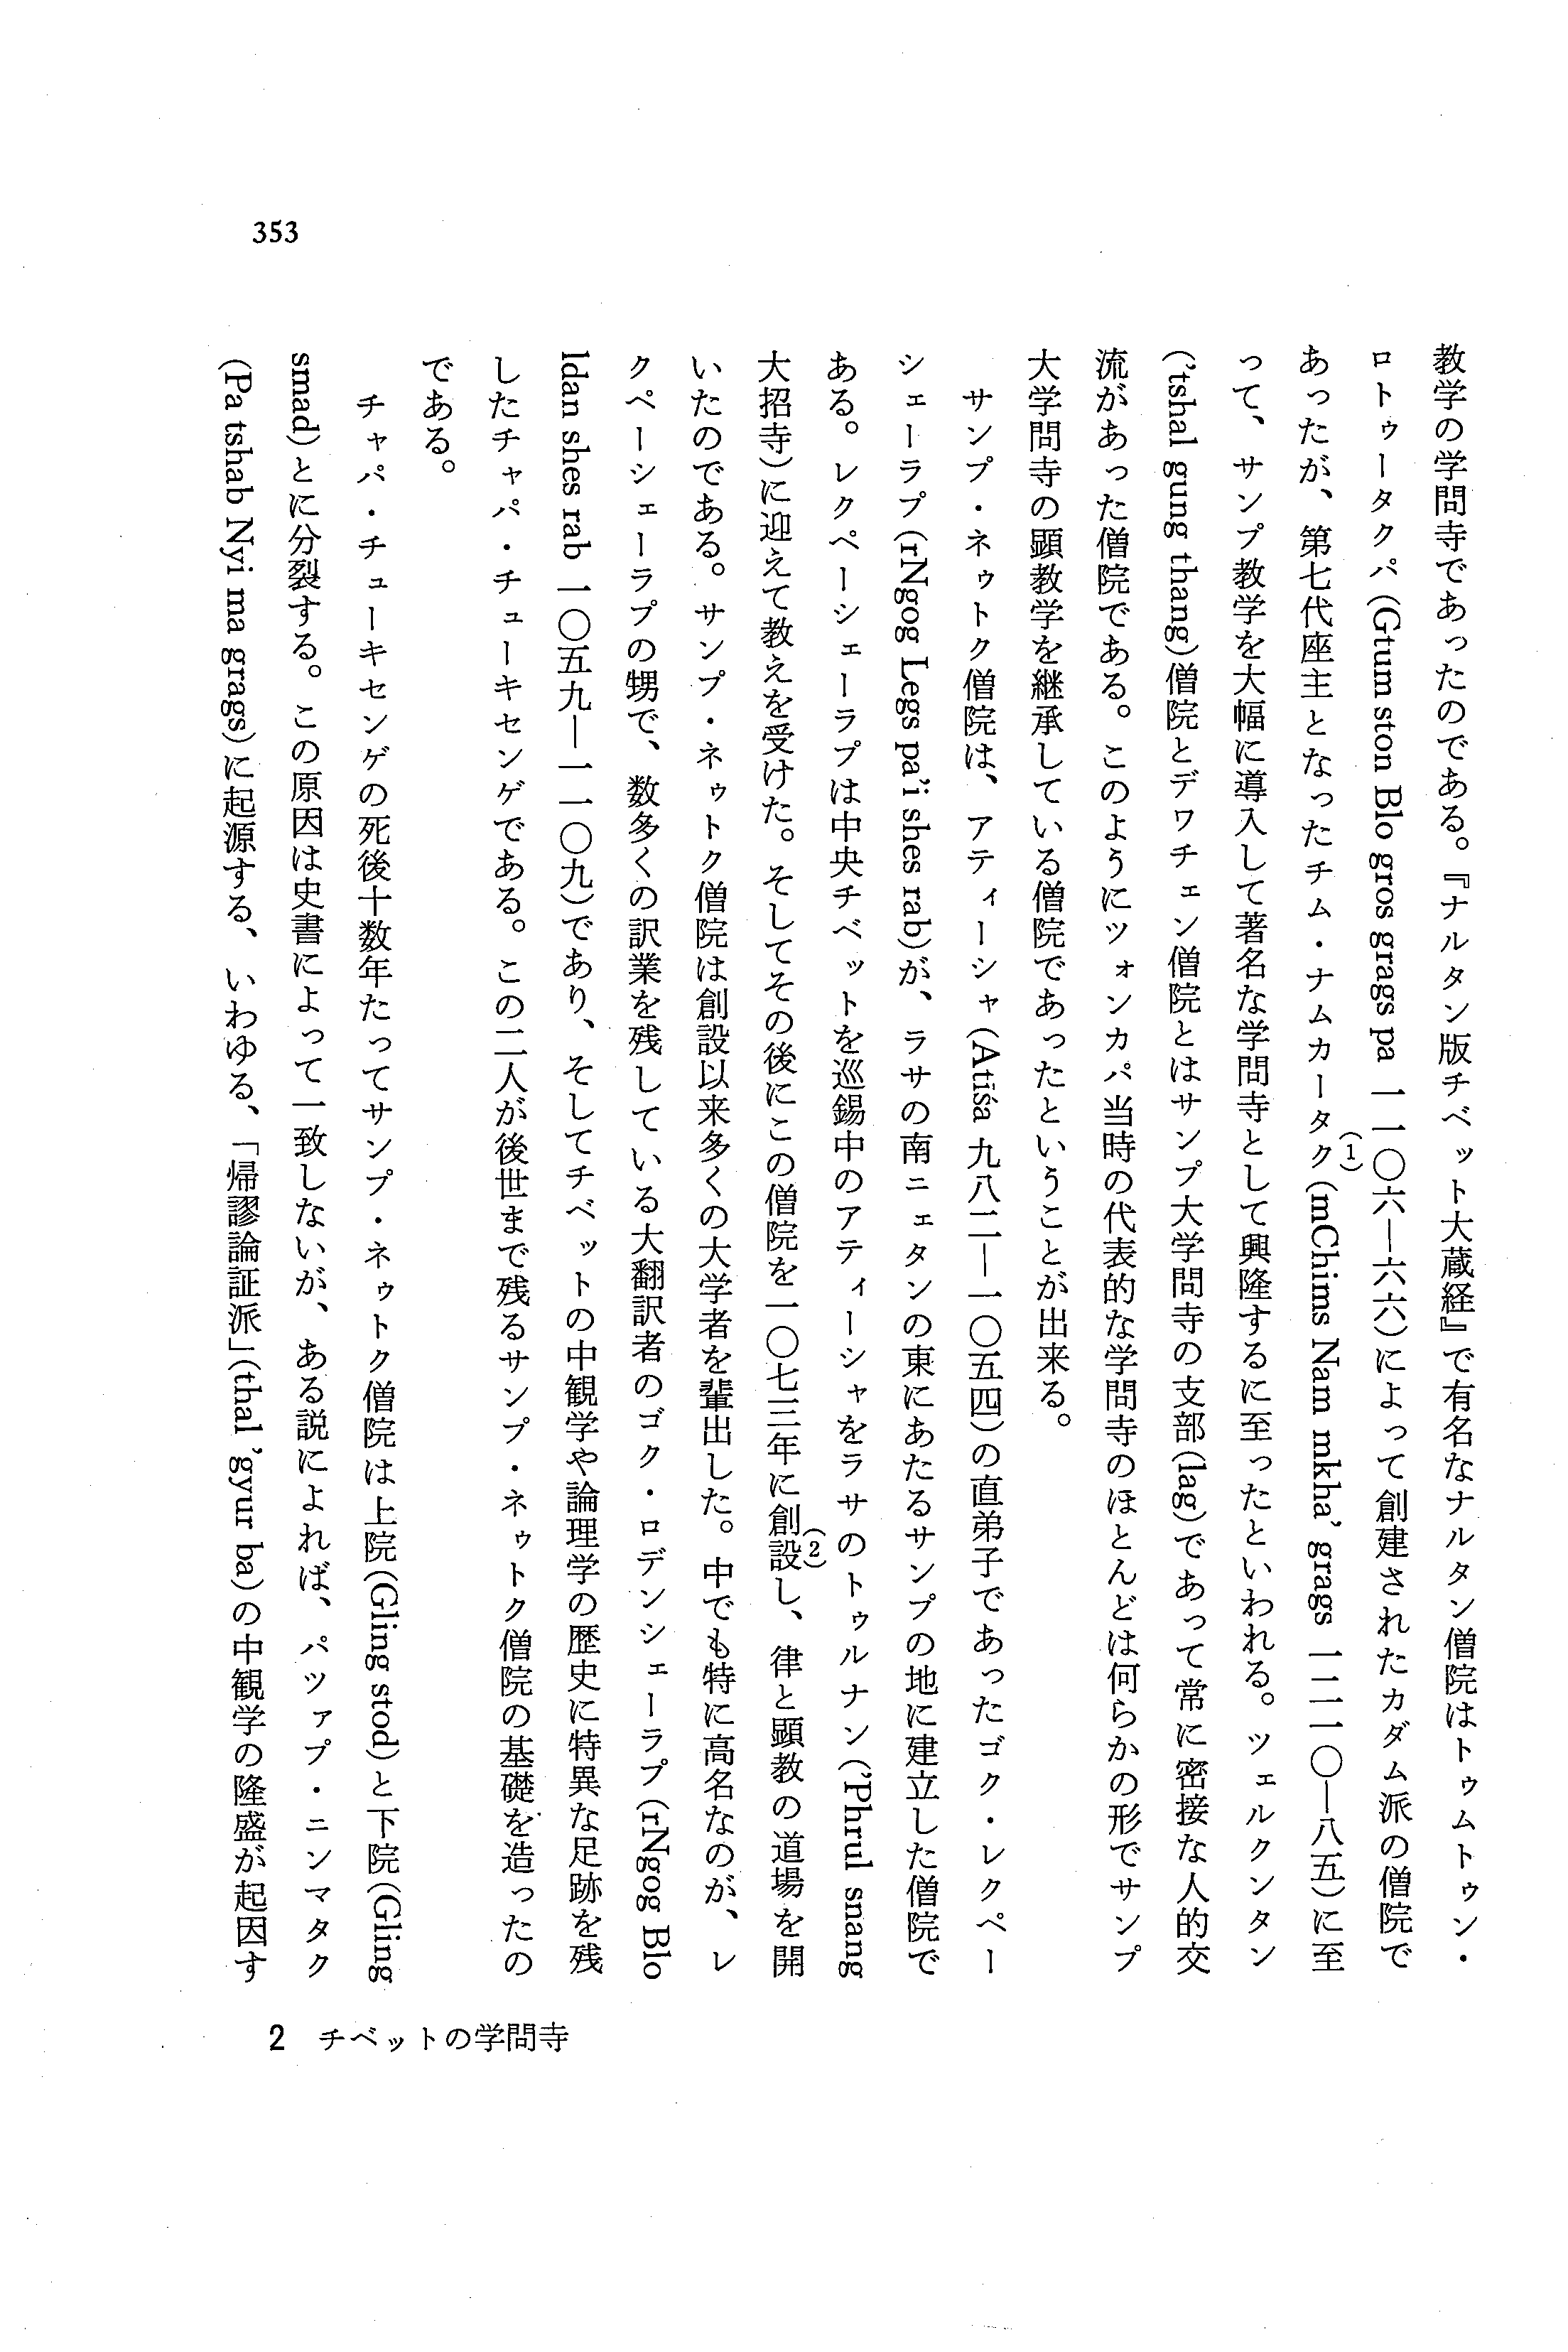 353
教学の学問寺であったのである。『ナルタン版チベット大蔵経』で有名なナルタン僧院はトゥムトゥン・
ロトゥータクパ(Gtum ston Blo gros grags pa 一一〇六―六六)によって創建されたカダム派の僧院で
あったが、第七代座主となったチム・ナムカータク(1)(mChims Nam mkha' grags 一二一〇―八五)に至
って、サンプ教学を大幅に導入して著名な学問寺として興隆するに至ったといわれる。ツェルクンタン
('tshal gung thang)僧院とデワチェン僧院とはサンプ大学問寺の支部(lag)であって常に密接な人的交
流があった僧院である。このようにツォンカパ当時の代表的な学問寺のほとんどは何らかの形でサンプ
大学問寺の顕教学を継承している僧院であったということが出来る。
サンプ・ネゥトク僧院は、アティーシャ(Atiśa 九八二―一〇五四)の直弟子であったゴク・レクペー
シェーラプ(rNgog Legs pa'i shes rab)が、ラサの南ニェタンの東にあたるサンプの地に建立した僧院で
ある。レクペーシェーラプは中央チベットを巡錫中のアティーシャをラサのトゥルナン('Phrul snang
大招寺)に迎えて教えを受けた。そしてその後にこの僧院を一〇七三年に創設(2)し、律と顕教の道場を開
いたのである。サンプ・ネゥトク僧院は創設以来多くの大学者を輩出した。中でも特に高名なのが、レ
クペーシェーラプの甥で、数多くの訳業を残している大翻訳者のゴク・ロデンシェーラプ(rNgog Blo
ldan shes rab 一〇五九―一一〇九)であり、そしてチベットの中観学や論理学の歴史に特異な足跡を残
したチャパ・チューキセンゲである。この二人が後世まで残るサンプ・ネゥトク僧院の基礎を造ったの
である。
チャパ・チューキセンゲの死後十数年たってサンプ・ネゥトク僧院は上院(Gling stod)と下院(Gling
smad)とに分裂する。この原因は史書によって一致しないが、ある説によれば、パツァプ・ニンマタク
(Pa tshab Nyi ma grags)に起源する、いわゆる、「帰謬論証派」(thal 'gyur ba)の中観学の隆盛が起因す
2 チベットの学問寺